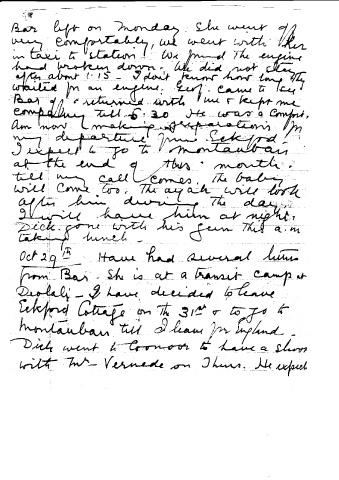 Bar left on Monday. She went off
very comfortably, we went with her
in taxi to station. We found the engine
had broken down. We did not stay
after about 1.15 - I don't know how long they
waited for an engine. Geof. came to see
Bar off & returned with me & kept me
company till 5.30 He was a comfort.
Am now making preparations for
my departure from Eckford
I expect to go to Montauban
at the end of this month.
till my call comes. The baby
will come too. The ayah will look
after him during the day
I will have him at night.
Dick gone with his gun this a.m
taking lunch -
Oct 29th Have had several letters
from Bar. She is at a transit camp at
Deolali - I have decided to leave
Eckford Cottage on the 31st & to go to
Montauban till I leave for England -
Dick went to Coonoor to have a shoot
with Mr Vernede on Thurs. He expects